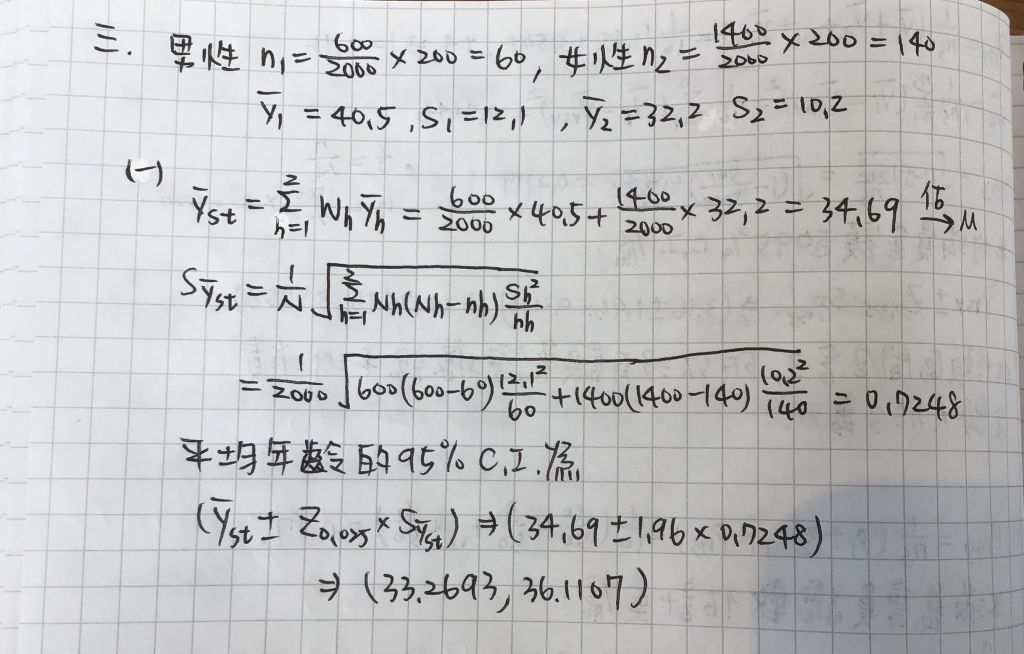 三. 男性 n₁ = 600/2000 × 200 = 60, 女性 n₂ = 1400/2000 × 200 = 140
ȳ₁ = 40.5, S₁ = 12.1, ȳ₂ = 32.2 S₂ = 10.2
(一)
ȳst = Σ_{h=1}^{2} Wh ȳh = 600/2000 × 40.5 + 1400/2000 × 32.2 = 34.69 估→ μ
Sȳst = 1/N √(Σ_{h=1}^{2} Nh(Nh-nh) Sh²/nh)
= 1/2000 √(600(600-60) 12.1²/60 + 1400(1400-140) 10.2²/140) = 0.7248
平均年齡的95% C.I.為
(ȳst ± Z₀.₀₂₅ × Sȳst) ⇒ (34.69 ± 1.96 × 0.7248)
⇒ (33.2693, 36.1107)